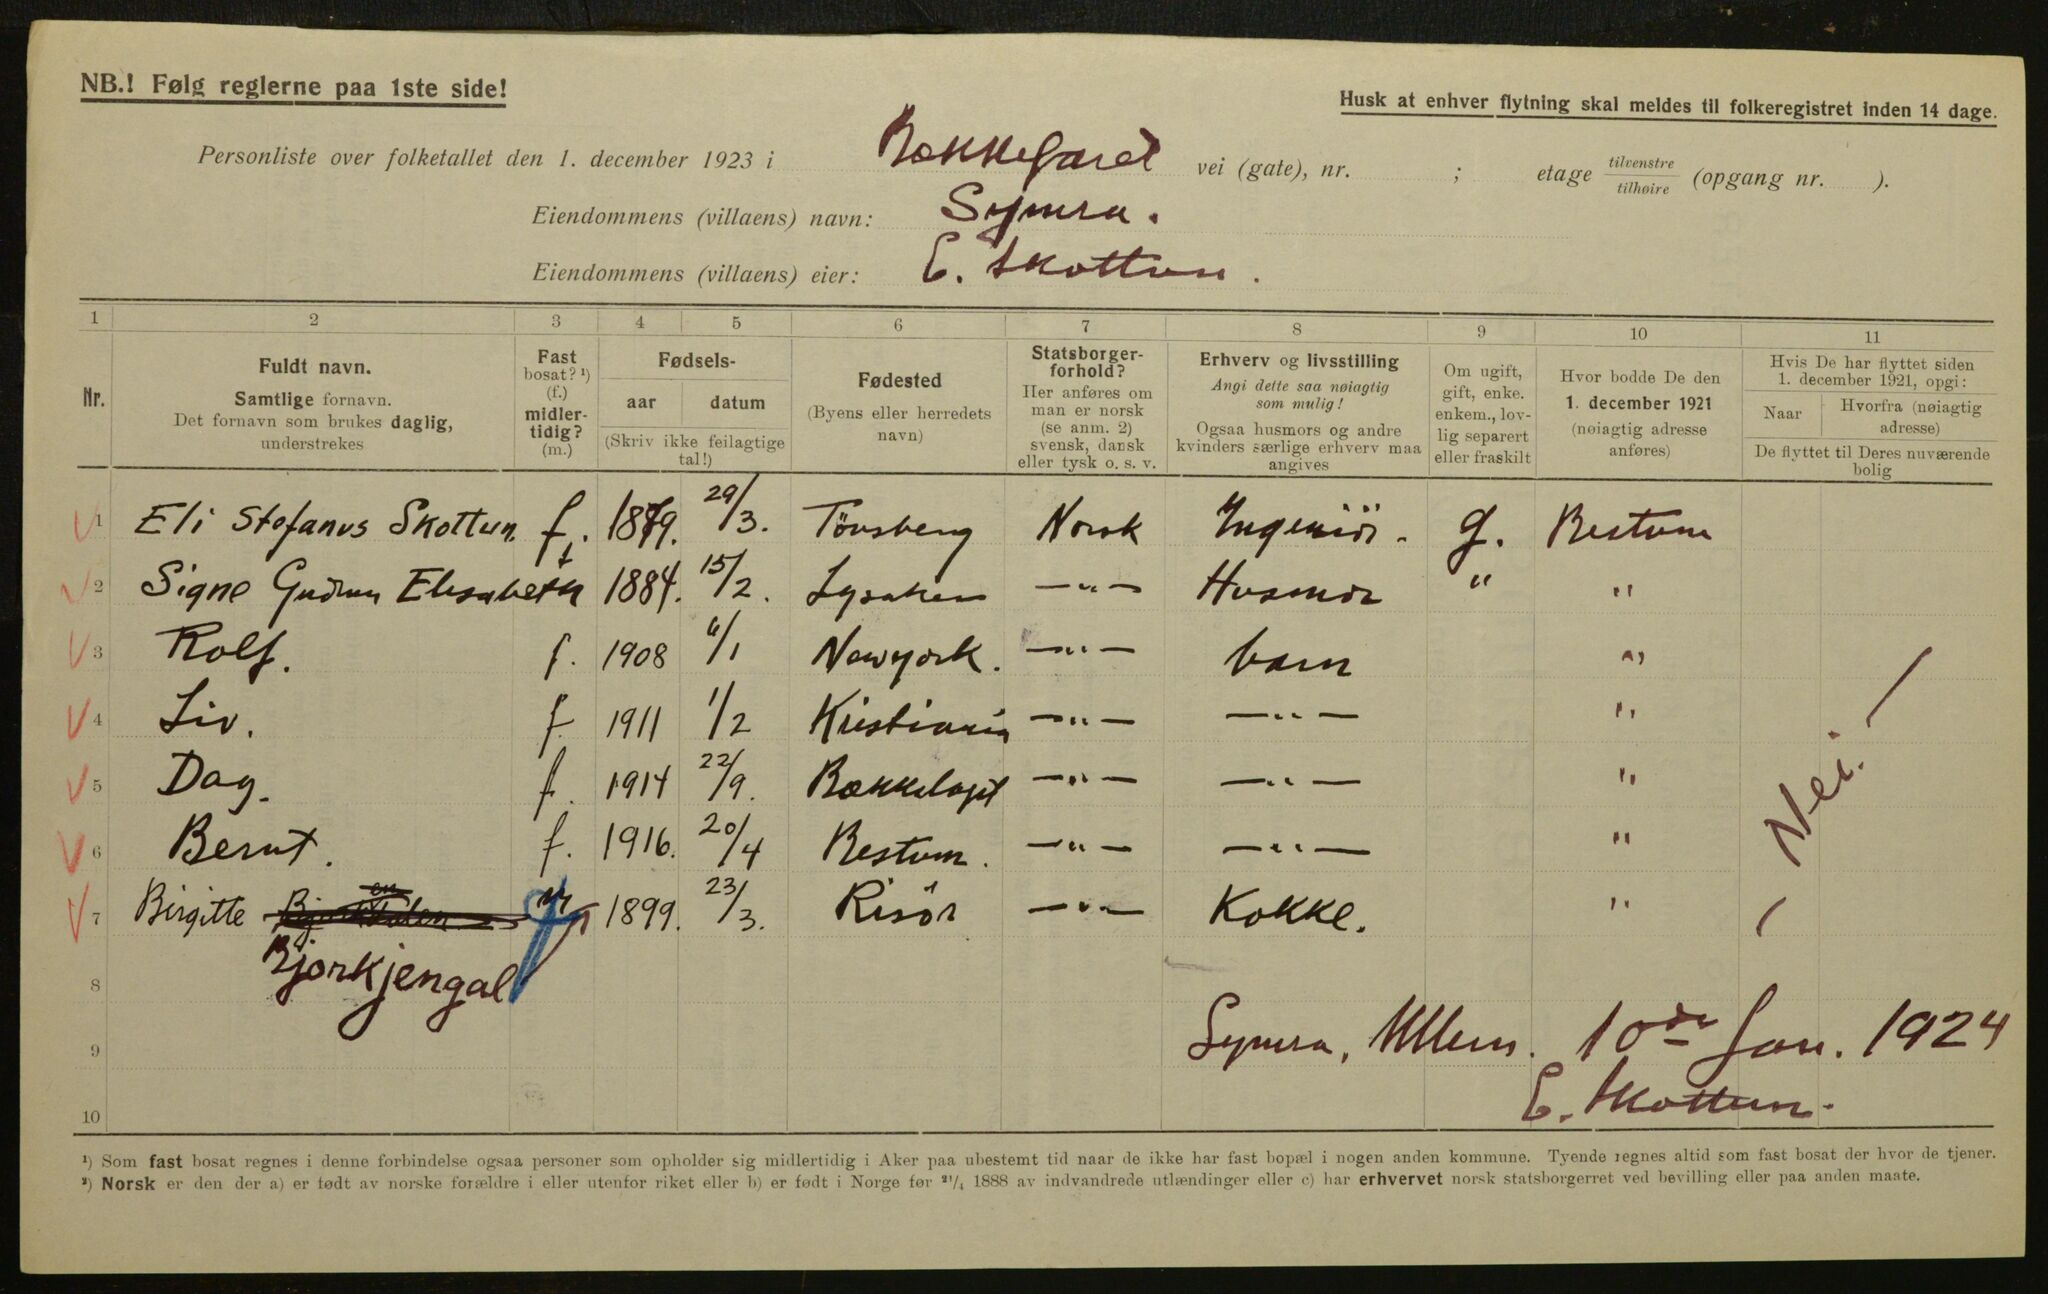 NB.! Følg reglerne paa 1ste side!
Husk at enhver flytning skal meldes til folkeregistret inden 14 dage.
Personliste over folketallet den 1. december 1923 i Bækkefaret vei (gate), nr. ; etage tilvenstre / tilhøire (opgang nr. ).
Eiendommens (villaens) navn: Symra.
Eiendommens (villaens) eier: E. Skottun.
1 2 3 4 5 6 7 8 9 10 11
Nr.
Fuldt navn.
Samtlige fornavn.
Det fornavn som brukes daglig, understrekes
Fast bosat? ¹) (f.) midler-tidig? (m.)
Fødsels-
aar datum
(Skriv ikke feilagtige tal!)
Fødested
(Byens eller herredets navn)
Statsborger-forhold?
Her anføres om man er norsk (se anm. 2) svensk, dansk eller tysk o. s. v.
Erhverv og livsstilling
Angi dette saa nøiagtig som mulig!
Ogsaa husmors og andre kvinders særlige erhverv maa angives
Om ugift, gift, enke. enkem., lov-lig separert eller fraskilt
Hvor bodde De den 1. december 1921 (nøiagtig adresse anføres)
Hvis De har flyttet siden 1. december 1921, opgi:
Naar Hvorfra (nøiagtig adresse)
De flyttet til Deres nuværende bolig
1 Eli Stefanus Skottun. f. 1879. 29/3. Tönsberg Norsk Ingeniör. g. Bestum
2 Signe Gudrun Elisabeth f 1884. 15/2. Lysaker —"— Husmor " "
3 Rolf. f. 1908 6/1 Newyork. —"— barn "
4 Liv. f. 1911 1/2 Kristiania —"— —"— "
5 Dag. f. 1914 22/9. Bækkelaget —"— —"— "
6 Bernt. f. 1916. 20/4 Bestum. —"— —"— "
7 Birgitte 1899. 23/3. Risör —"— Kokke. "
Bjorkjengal
— Nei. —
8
Symra, Ullern. 10de Jan. 1924
9
E. Skottun.
10
¹) Som fast bosat regnes i denne forbindelse ogsaa personer som opholder sig midlertidig i Aker paa ubestemt tid naar de ikke har fast bopæl i nogen anden kommune. Tyende regnes altid som fast bosat der hvor de tjener.
²) Norsk er den der a) er født av norske forældre i eller utenfor riket eller b) er født i Norge før ²¹/₄ 1888 av indvandrede utlændinger eller c) har erhvervet norsk statsborgerret ved bevilling eller paa anden maate.